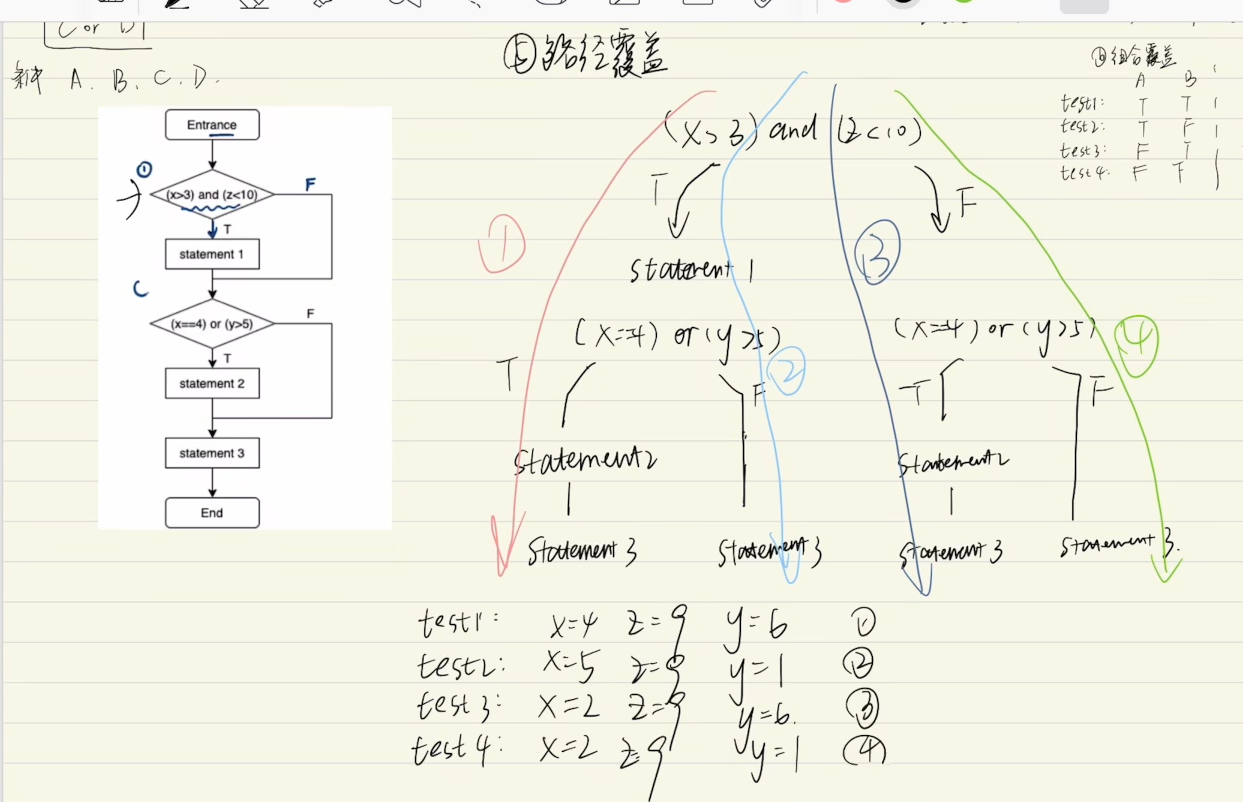 C or D
条件 A. B. C. D.
⑤路径覆盖
组合覆盖
A B
test1: T T
test2: T F
test3: F T
test4: F F
Entrance
①
(x>3) and (z<10)
F
T
statement 1
C
(x==4) or (y>5)
F
T
statement 2
statement 3
End
(x>3) and (z<10)
T
F
① ③
statement 1
(x==4) or (y>5)
(x==4) or (y>5)
② ④
T F
T F
statement2
statement2
statement 3
statement 3
statement 3
statement 3.
test1: x=4 z=9 y=6 ①
test2: x=5 z=9 y=1 ②
test3: x=2 z=9 y=6. ③
test4: x=2 z=9 y=1 ④